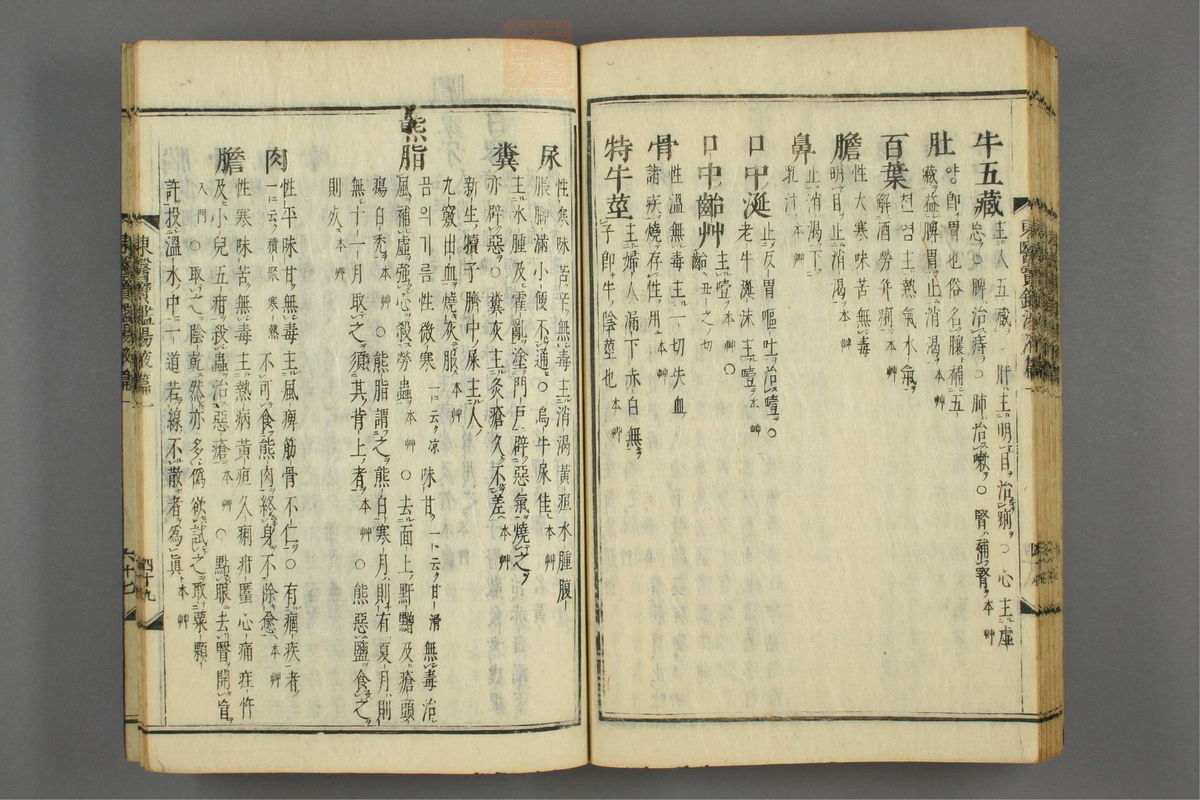 牛五藏 主人五藏○肝主明目治痢○心主虛
忘○脾治痔○肺治嗽○腎補腎本艸
肚 양卽胃也俗名膁補五
藏益脾胃止消渴本艸
百葉 쳔엽主熱氣水氣
解酒勞幷痢本艸
膽 性大寒味苦無毒
明目止消渴本艸
鼻 止消渴下
乳汁本艸
口中涎 止反胃嘔吐治噎○
老牛涎沫主噎本艸○
口中齝艸 主噎本艸
齝丑之切
骨 性溫無毒主一切失血
諸疾燒存性用本艸
特牛莖 主婦人漏下赤白無
子卽牛陰莖也本艸
東醫寶鑑湯液篇一
尿 性寒味苦辛無毒主消渴黃疸水腫腹
脹脚滿小便不通○烏牛尿佳本艸
糞 主水腫及霍亂塗門戶辟惡氣燒之
亦辟惡○糞灰主灸瘡久不差本艸○
新生犢子臍中屎主人
九竅出血燒灰服本艸
熊脂 곰의기름性微寒一云凉味甘一云甘滑無毒治
風補虛強心殺勞蟲本艸○去面上䵟䵳及瘡頭
瘍白禿本艸○熊脂謂之熊白寒月則有夏月則
無十一月取之須其背上者本艸○熊惡鹽食之
則死本艸
肉 性平味甘無毒主風痺筋骨不仁○有痼疾者
一云積聚寒熱不可食熊肉終身不除愈本艸
膽 性寒味苦無毒主熱病黃疸久痢疳䘌心痛疰忤
及小兒五疳殺蟲治惡瘡本艸○點眼去瞖開盲
入門○取之陰乾然亦多僞欲試之取粟顆
許投溫水中一道若線不散者爲眞本艸
東醫寶鑑湯液篇一
六十七
四十九